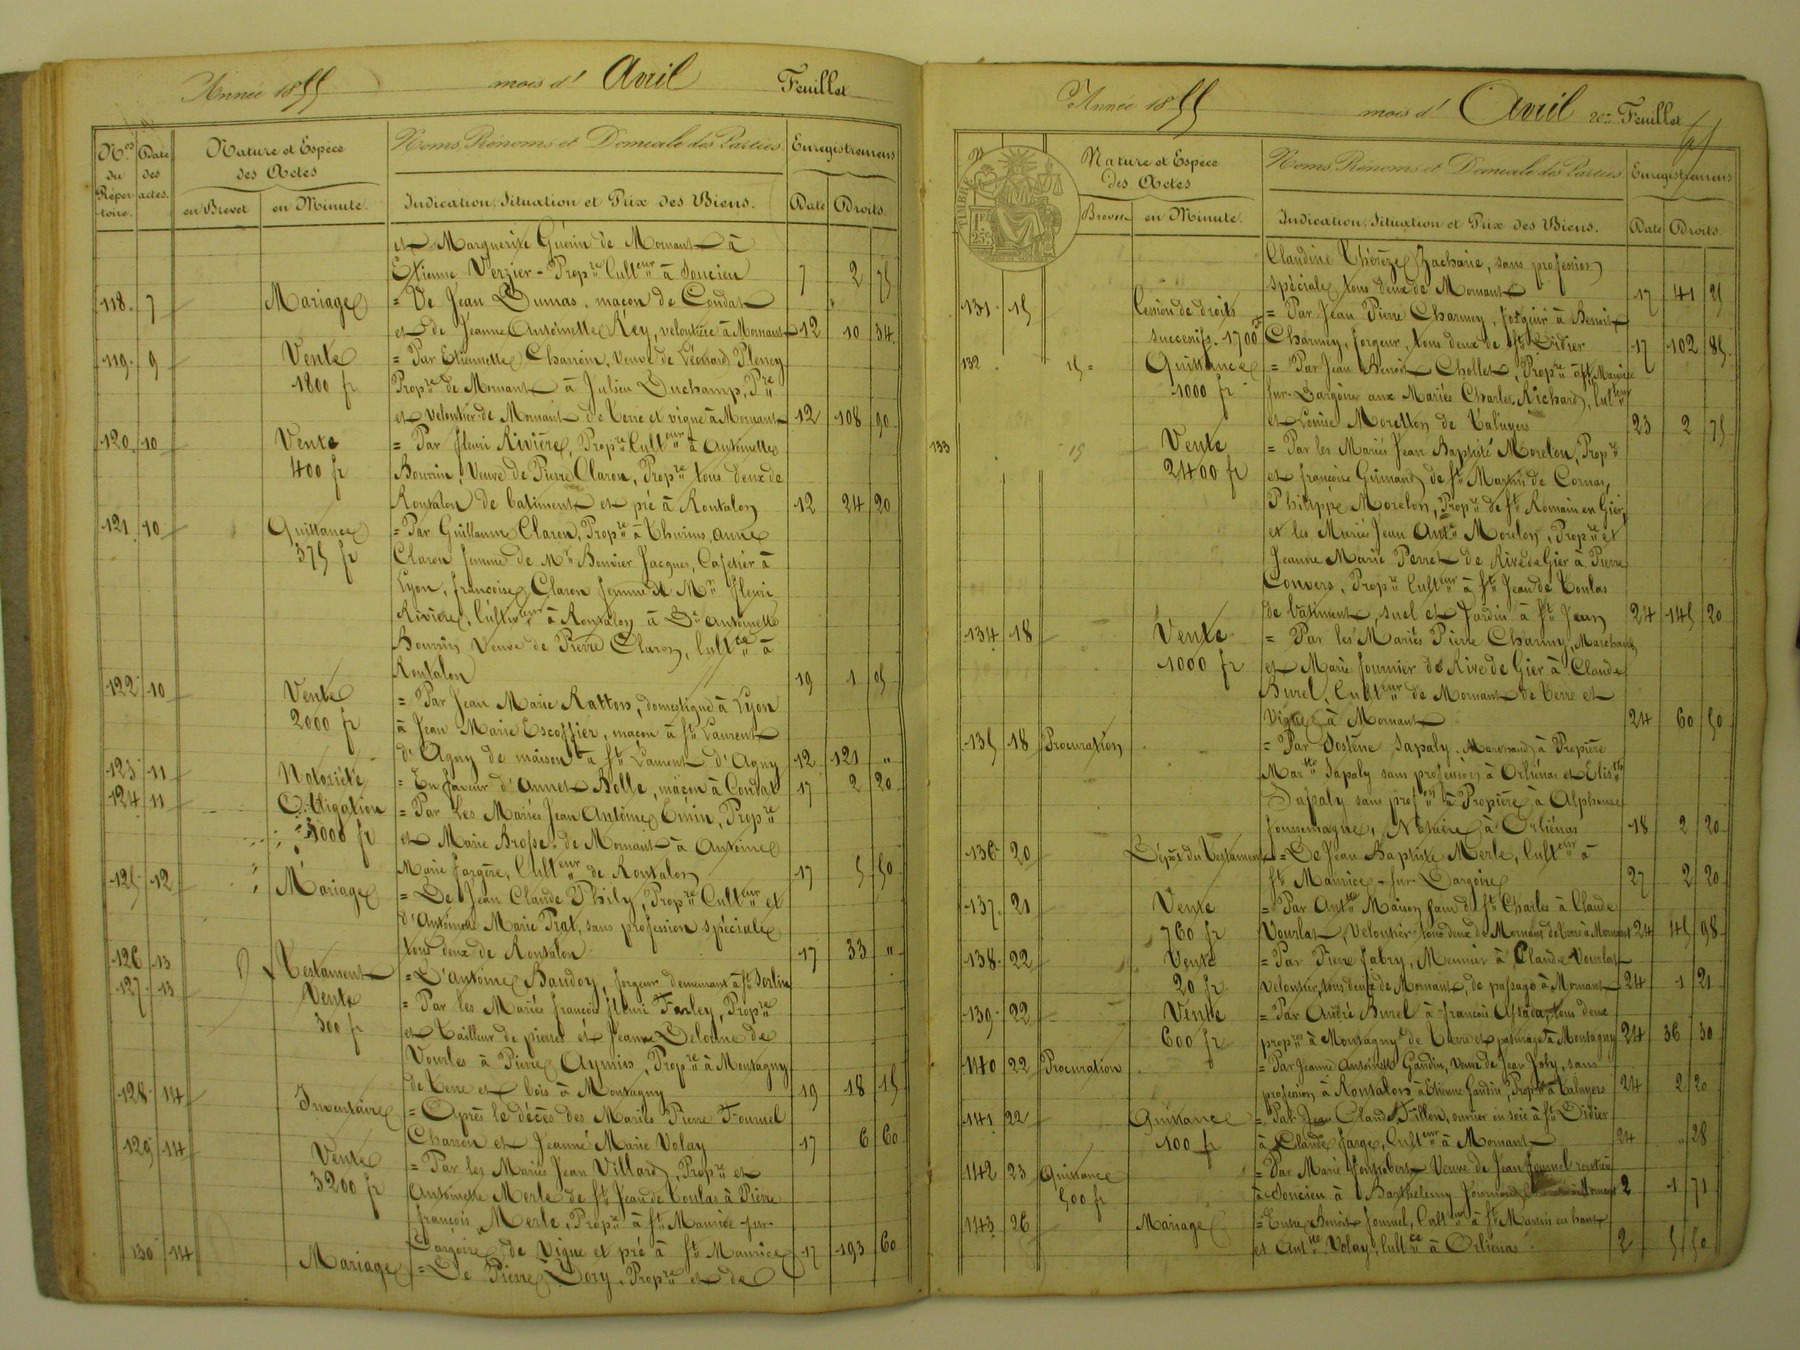 Année 1855 mois d' Avril Feuillet
Nos du Répertoire. Date des actes. Nature et Espèce des Actes Noms, Prénoms et Domicile des Parties. Enregistrement
en Brevet en Minute. Indication, Situation et Prix des Biens. Date Droits.
et Marguerite Guérin de Mornant à
Etienne Verzier = Propre Culteur à Soucieu 7 2 75
118. 7 Mariage = De Jean Dumas, maçon de Condat
et de Jeanne Antoinette Rey, veloutière à Mornant 12 10 34
119. 9 Vente = Par Etiennette Charroin, Veuve de Léonard Pleney
1800 fr Propre de Mornant à Julien Duchamp, Pre
et veloutier de Mornant de terre et vigne à Mornant 12 108 90
120. 10 Vente = Par Henri Rivière, Propre Culteur à Antoinette
400 fr Bouvrin, Veuve de Pierre Claron, Propre tous deux de
Rontalon de batiment et pré à Rontalon 12 24 20
121 10 Quittance = Par Guillaume Claron, Propre à Thurins, anne
375 fr Claron femme de Mr Bouvier Jacques, Cafetier à
Lyon, françoise Claron femme de Mr Henri
Rivière, Cultivateur à Rontalon à De Antoinette
Bouvrin Veuve de Pierre Claron, Cultce à
Rontalon 19 1 05
122 10 Vente = Par Jean Marie Ratton, domestique à Lyon
2000 fr à Jean Marie Escoffier, maçon à St Laurent
d'Agny de maison à St Laurent d'Agny 12 121 "
123 11 Notoriété = En faveur d'Annet Bolle, maçon à Condat 17 2 20
124 11 Obligation = Par Les Mariés Jean Antoine Emin, Propre
1000 fr et Marie Brosse de Mornant à Antoine
Marie fargère, Culteur de Rontalon 17 5 50
125 12 Mariage = De Jean Claude Phily, Propre Culteur et
d'Antoinette Marie Prat, sans profession spéciale
tous deux de Rontalon 17 33 "
126 13 Testament = D'antoine Baudoy, forgeur demeurant à St Sorlin
127. 13 Vente = Par les Mariés françois Henri Farley, Propre
300 fr et tailleur de pierres et Jeanne Delorme de
Vourles à Pierre Aymin, Propre à Montagny
de terre et bois à Montagny 19 18 15
128 14 Inventaire = Après le décès des Mariés Pierre Fournel
Charron et Jeanne Marie Volay 17 6 60
129 14 Vente = Par les Mariés Jean Villard, Propre et
3200 fr Antoinette Merle de St Jean de Toulas à Pierre
françois Merle, Propre à St Maurice-sur-
Dargoire de Vigne et pré à St Maurice 17 193 60
130 14 Mariage = De Pierre Dory, Propre et de
Année 1855 mois d' Avril 20e Feuillet
TIMBRE 25c
Nature et Espèce des Actes Noms, Prénoms et Domicile des Parties. Enregistrement
Brevet en Minute. Indication, Situation et Prix des Biens. Date Droits.
Claudine Thérèze Zacharie, sans profession
spéciale tous deux de Mornant 17 41 25
131 15 Cession de droits = Par Jean Pierre Charmey, forgeur à Benoît
successifs. 1700 Charmey, forgeur, tous deux de St Didier 17 102 85
132 15 Quittance = Par Jean Benoit Chollet, Propre à St Maurice
1000 fr sur-Dargoire aux Mariés Charles Richard, Culteur
et Louise Moretton de Taluyers 23 2 75
133 15 Vente = Par les Mariés Jean Baptiste Morelon, Propre
2400 fr et françoise Guinand de St Martin de Cornas,
Philippe Morelon, Propre de St Romain en Gier,
et les Mariés Jean Ante Morelon, Propre et
Jeanne Marie Perret de Rive de Gier à Pierre
Convers, Propre Culteur à St Jean de Toulas
de batiment, suel et Jardin à St Jean 24 145 20
134 18 Vente = Par les Mariés Pierre Charmy, Marchand
1000 fr et Marie fournier de Rive de Gier à Claude
Burel, Culteur de Mornant de terre et
Vigne à Mornant 24 60 50
135 18 Procuration = Par Sostène Sapaly, Marchand à Propière
Martte Sapaly sans profession à Orliénas et Elisth
Sapaly sans profon à Propière à Alphonse
Jossemagne, Notaire à Orliénas 18 2 20
136 20 Dépôt du Testament = De Jean Baptiste Merle, Culteur à
St Maurice-sur-Dargoire 27 2 20
137. 21 Vente = Par Antte Maison dit St Charles à Claude
760 fr Vourlat, Veloutier tous deux de Mornant de terre à Mornant 24 45 98
138. 22 Vente = Par Pierre Fabry, Meunier à Claude Vourlat
20 fr veloutier, tous deux de Mornant, de passage à Mornant 24 1 21
139 22 Vente = Par André Burel à françois Assada, tous deux
600 fr propres à Montagny de terre et paturage à Montagny 24 36 30
140 22 Procuration = Par Jeanne Antoinette Gaudin, Veuve de Jean Joly, sans
profession à Rontalon à Etienne Gaudin, Propre à Taluyers 24 2 20
141 22 Quittance = Par Jean Claude Fillon, ouvrier en soie à St Didier
100 fr à Claude farge, Culteur à Mornant 24 " 28
142 23 Quittance = Par Marie Montrobert Veuve de Jean fournel rentière
500 fr à Soucieu à Barthélemy Journoud 2 1 71
143 26 Mariage = Entre Benoit fournel, Culteur à St Martin en haut
et Antte Volay, Cultce à Orliénas. 2 5 50